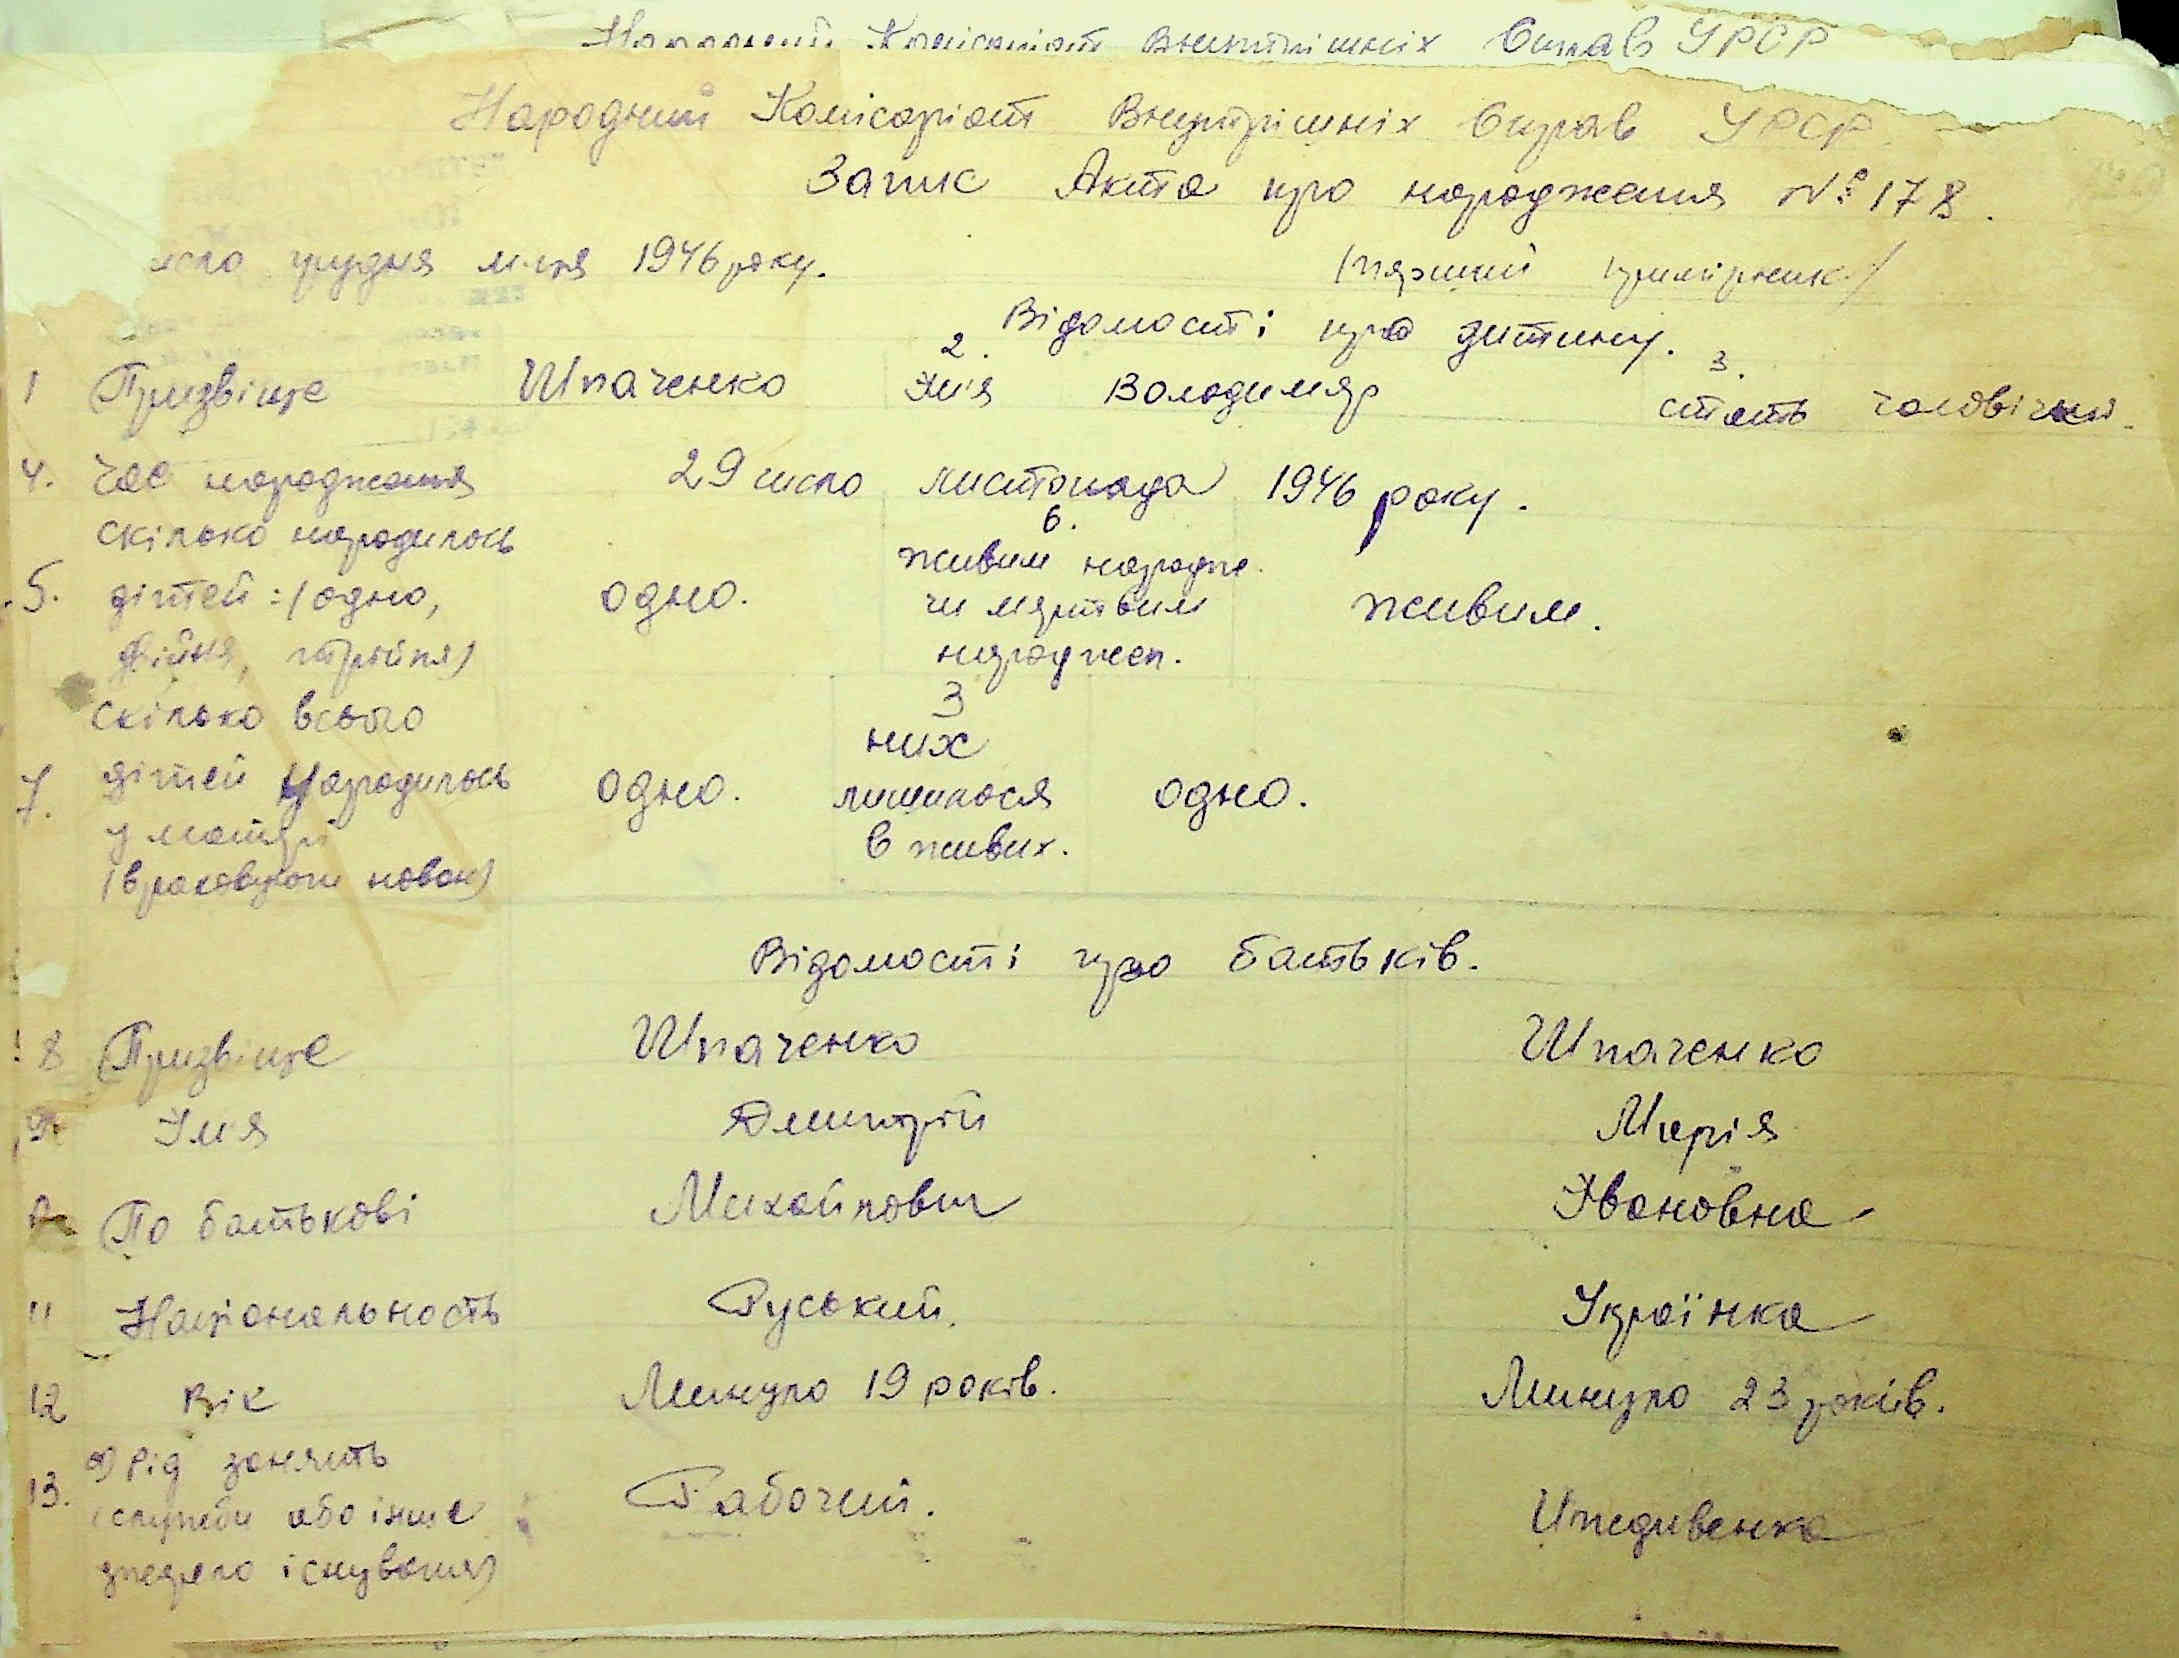 Народний Комісаріат Внутрішніх Справ УРСР
Народний Комісаріат Внутрішніх Справ УРСР
Запис Акта про народження № 178.
исло грудня м-ця 1946 року.
(перший примірник)
Відомості про дитину.
1 Призвіще Шпаченко 2. Імʼя Володимяр 3. стать чоловічий.
4. Час народження 29 число листопада 1946 року.
скілько народилось
5. дітей: (одно, одно.
двійня, трійня)
6.
живим народже.
чи мертвим живим.
народжен.
скілько всього
7. дітей народилось одно.
у матері
(враховуючи новон)
З
них
лишилося одно.
в живих.
Відомості про батьків.
8 Призвіще Шпаченко Шпаченко
9. Імʼя Дмитрій Марія
По батькові Михайлович Івановна
11 Національность Руський. Українка
12 Вік Минуло 19 років. Минуло 23 років.
13. а) Рід занять Рабочий.
(служби або інше
джерело існування)